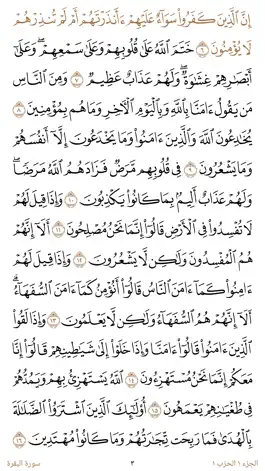 إِنَّ ٱلَّذِينَ كَفَرُوا۟ سَوَآءٌ عَلَيْهِمْ ءَأَنذَرْتَهُمْ أَمْ لَمْ تُنذِرْهُمْ
لَا يُؤْمِنُونَ ٦ خَتَمَ ٱللَّهُ عَلَىٰ قُلُوبِهِمْ وَعَلَىٰ سَمْعِهِمْ ۖ وَعَلَىٰٓ
أَبْصَٰرِهِمْ غِشَٰوَةٌ ۖ وَلَهُمْ عَذَابٌ عَظِيمٌ ٧ وَمِنَ ٱلنَّاسِ
مَن يَقُولُ ءَامَنَّا بِٱللَّهِ وَبِٱلْيَوْمِ ٱلْـَٔاخِرِ وَمَا هُم بِمُؤْمِنِينَ ٨
يُخَٰدِعُونَ ٱللَّهَ وَٱلَّذِينَ ءَامَنُوا۟ وَمَا يَخْدَعُونَ إِلَّآ أَنفُسَهُمْ
وَمَا يَشْعُرُونَ ٩ فِى قُلُوبِهِم مَّرَضٌ فَزَادَهُمُ ٱللَّهُ مَرَضًا ۖ
وَلَهُمْ عَذَابٌ أَلِيمٌۢ بِمَا كَانُوا۟ يَكْذِبُونَ ١٠ وَإِذَا قِيلَ لَهُمْ
لَا تُفْسِدُوا۟ فِى ٱلْأَرْضِ قَالُوٓا۟ إِنَّمَا نَحْنُ مُصْلِحُونَ ١١ أَلَآ إِنَّهُمْ
هُمُ ٱلْمُفْسِدُونَ وَلَٰكِن لَّا يَشْعُرُونَ ١٢ وَإِذَا قِيلَ لَهُمْ
ءَامِنُوا۟ كَمَآ ءَامَنَ ٱلنَّاسُ قَالُوٓا۟ أَنُؤْمِنُ كَمَآ ءَامَنَ ٱلسُّفَهَآءُ ۗ
أَلَآ إِنَّهُمْ هُمُ ٱلسُّفَهَآءُ وَلَٰكِن لَّا يَعْلَمُونَ ١٣ وَإِذَا لَقُوا۟
ٱلَّذِينَ ءَامَنُوا۟ قَالُوٓا۟ ءَامَنَّا وَإِذَا خَلَوْا۟ إِلَىٰ شَيَٰطِينِهِمْ قَالُوٓا۟ إِنَّا
مَعَكُمْ إِنَّمَا نَحْنُ مُسْتَهْزِءُونَ ١٤ ٱللَّهُ يَسْتَهْزِئُ بِهِمْ وَيَمُدُّهُمْ
فِى طُغْيَٰنِهِمْ يَعْمَهُونَ ١٥ أُو۟لَٰٓئِكَ ٱلَّذِينَ ٱشْتَرَوُا۟ ٱلضَّلَٰلَةَ
بِٱلْهُدَىٰ فَمَا رَبِحَت تِّجَٰرَتُهُمْ وَمَا كَانُوا۟ مُهْتَدِينَ ١٦
الجزء ١ الحزب ١ ٣ سورة البقرة